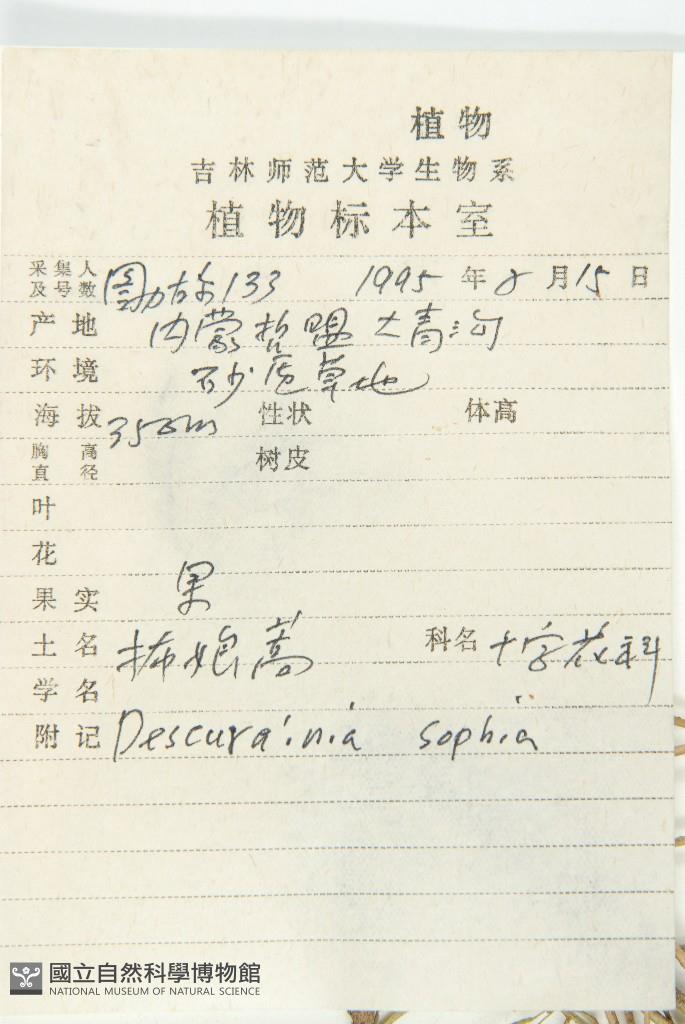 植物
吉林师范大学生物系
植物标本室
采集人及号数 133 1995年8月15日
产地 内蒙哲盟大青沟
环境 砂质草地
海拔 350m 性状 体高
胸高直径 树皮
叶
花
果实 果
土名 播娘蒿 科名 十字花科
学名
附记 Descurainia sophia
國立自然科學博物館
NATIONAL MUSEUM OF NATURAL SCIENCE